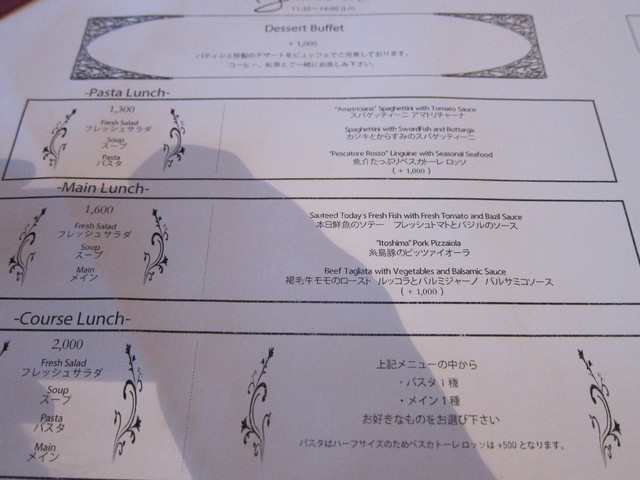 11:30～14:00 (L.O)
Dessert Buffet
+ 1,000
パティシエ特製のデザートをビュッフェでご用意しております。
コーヒー、紅茶とご一緒にお楽しみ下さい。
-Pasta Lunch-
1,300
Fresh Salad
フレッシュサラダ
Soup
スープ
Pasta
パスタ
"Ametriciana" Spaghettini with Tomato Sauce
スパゲッティーニ アマトリチャーナ
Spaghettini with SwordFish and Bottarga
カジキとからすみのスパゲッティーニ
"Pescatore Rosso" Linguine with Seasonal Seafood
魚介たっぷりペスカトーレ ロッソ
( + 1,000 )
-Main Lunch-
1,600
Fresh Salad
フレッシュサラダ
Soup
スープ
Main
メイン
Sauteed Today's Fresh Fish with Fresh Tomato and Bazil Sauce
本日鮮魚のソテー フレッシュトマトとバジルのソース
"Itoshima" Pork Pizzaiola
糸島豚のピッツァイオーラ
Beef Tagliata with Vegetables and Balsamic Sauce
褐毛牛モモのロースト ルッコラとパルミジャーノ バルサミコソース
( + 1,000 )
-Course Lunch-
2,000
Fresh Salad
フレッシュサラダ
Soup
スープ
Pasta
パスタ
Main
メイン
上記メニューの中から
・パスタ 1 種
・メイン 1 種
お好きなものをお選び下さい
パスタはハーフサイズのためペスカトーレ ロッソは +500 となります。